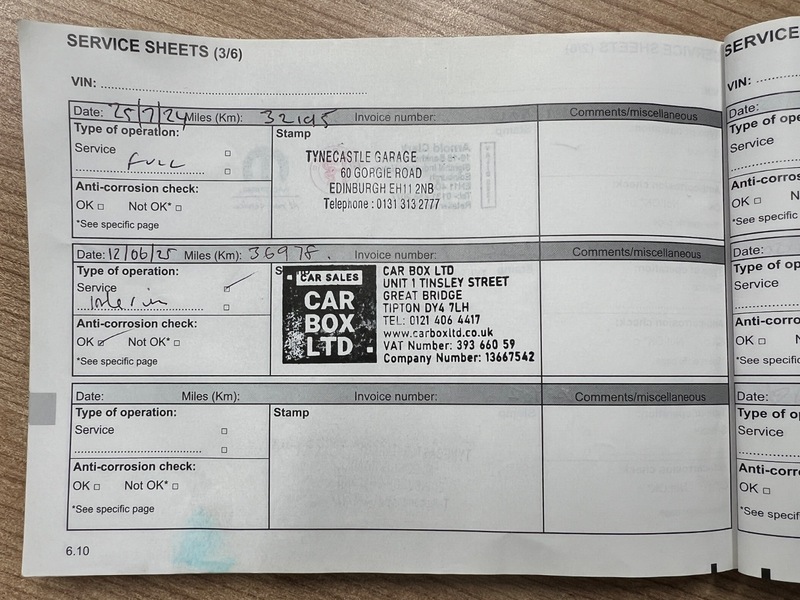 SERVICE SHEETS (3/6)
VIN:
Date: 25/7/24 Miles (Km): 32195 Invoice number: Comments/miscellaneous
Type of operation: Stamp
Service
FULL
Anti-corrosion check:
OK Not OK*
*See specific page
TYNECASTLE GARAGE
60 GORGIE ROAD
EDINBURGH EH11 2NB
Telephone : 0131 313 2777
Date: 12/06/25 Miles (Km): 36978. Invoice number: Comments/miscellaneous
Type of operation:
Service
Interim
Anti-corrosion check:
OK Not OK*
*See specific page
CAR SALES
CAR
BOX
LTD
CAR BOX LTD
UNIT 1 TINSLEY STREET
GREAT BRIDGE
TIPTON DY4 7LH
TEL: 0121 406 4417
www.carboxltd.co.uk
VAT Number: 393 660 59
Company Number: 13667542
Date: Miles (Km): Invoice number: Comments/miscellaneous
Type of operation: Stamp
Service
Anti-corrosion check:
OK Not OK*
*See specific page
6.10
SERVICE
VIN:
Date:
Type of
Service
Anti-corros
OK
*See specific
Date:
Type of op
Service
Anti-corro
OK
*See specifi
Date:
Type of op
Service
Anti-corr
OK
*See specif